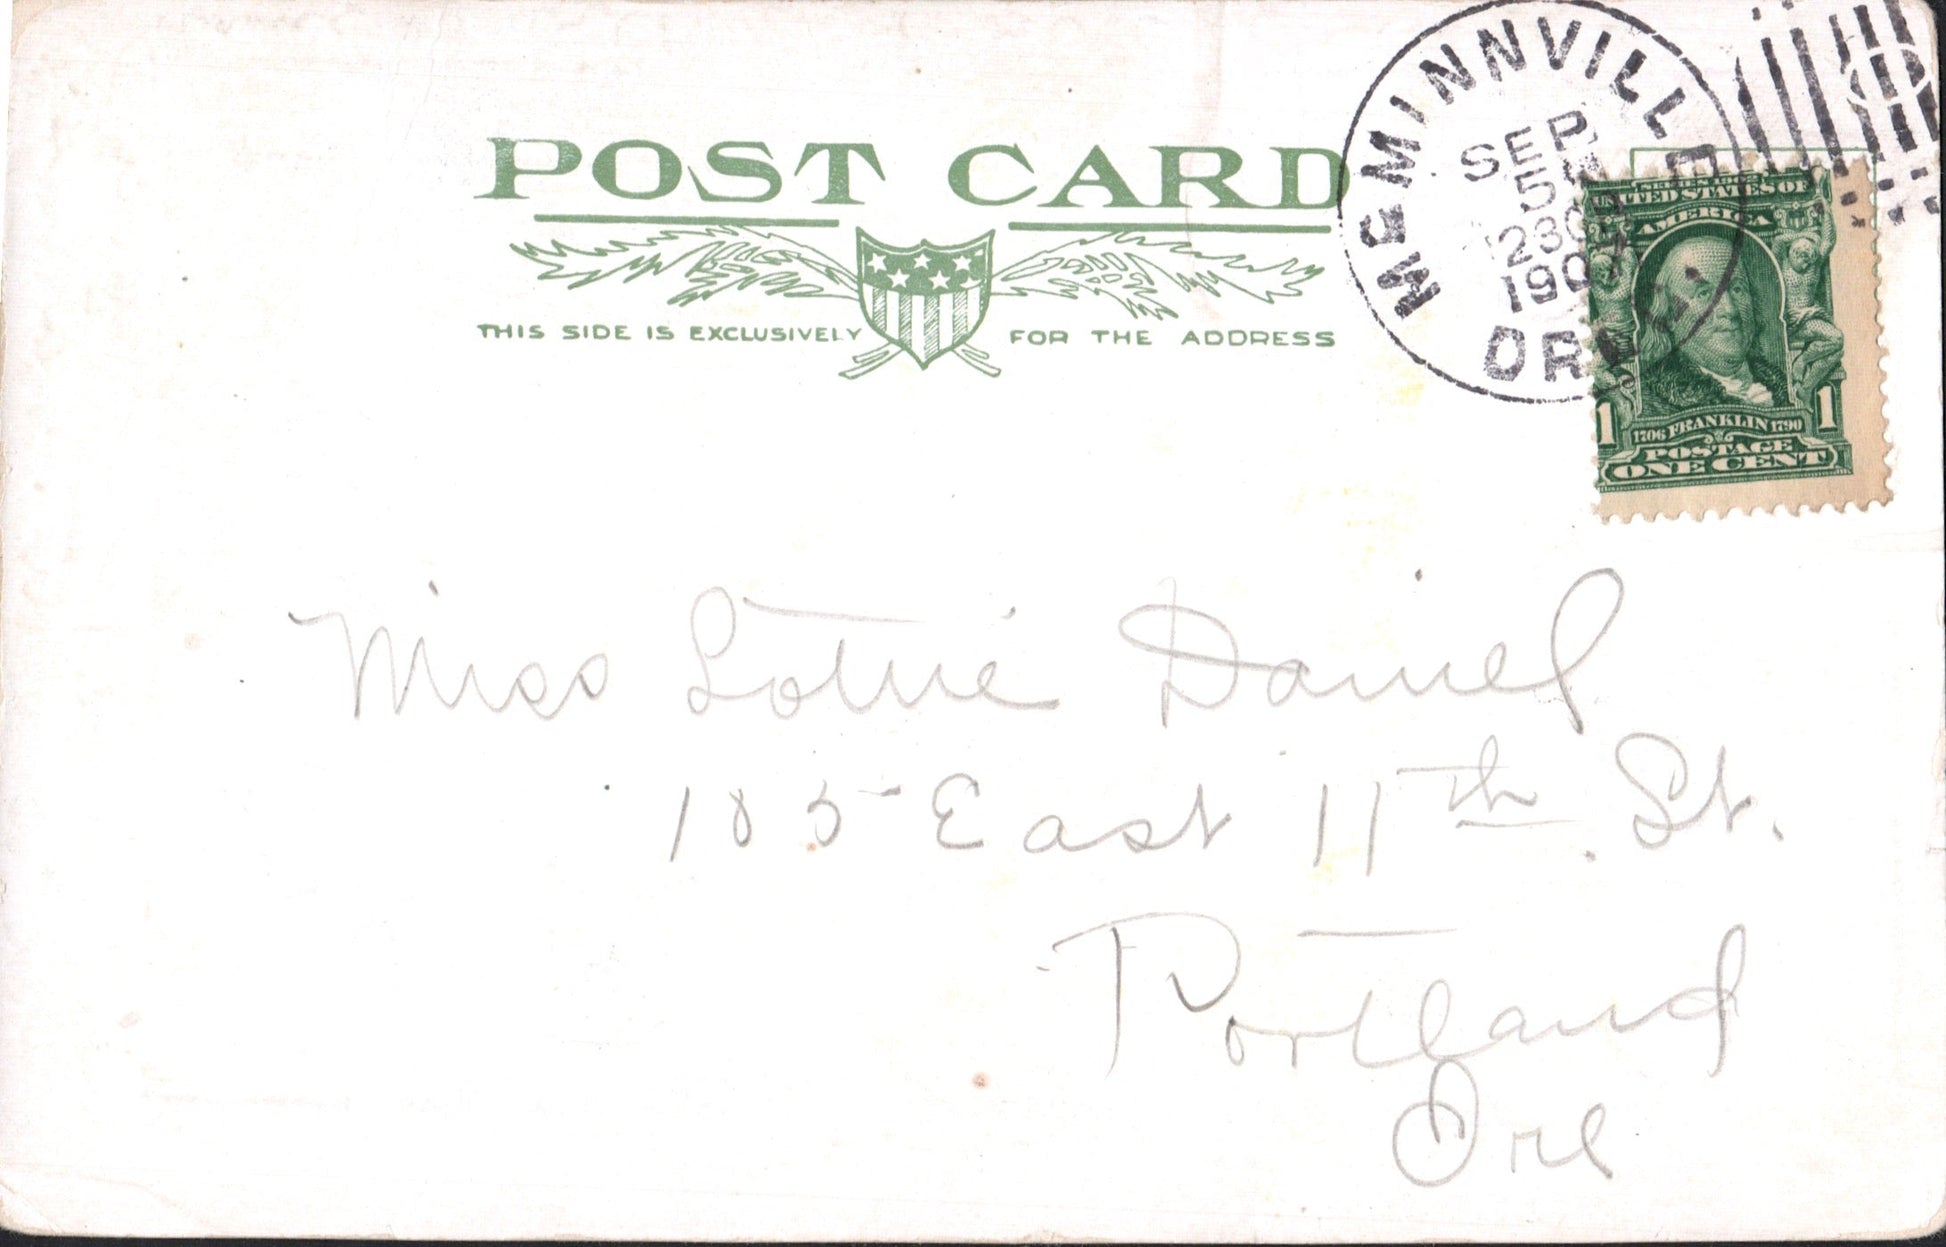 POST CARD
THIS SIDE IS EXCLUSIVELY FOR THE ADDRESS
McMINNVILLE
SEP
5
1907
OREG.
SERIES 1902
UNITED STATES OF
AMERICA
1 1
1706 FRANKLIN 1790
POSTAGE
ONE CENT
Miss Lottie Daniel
185 East 11th. St.
Portland
Ore